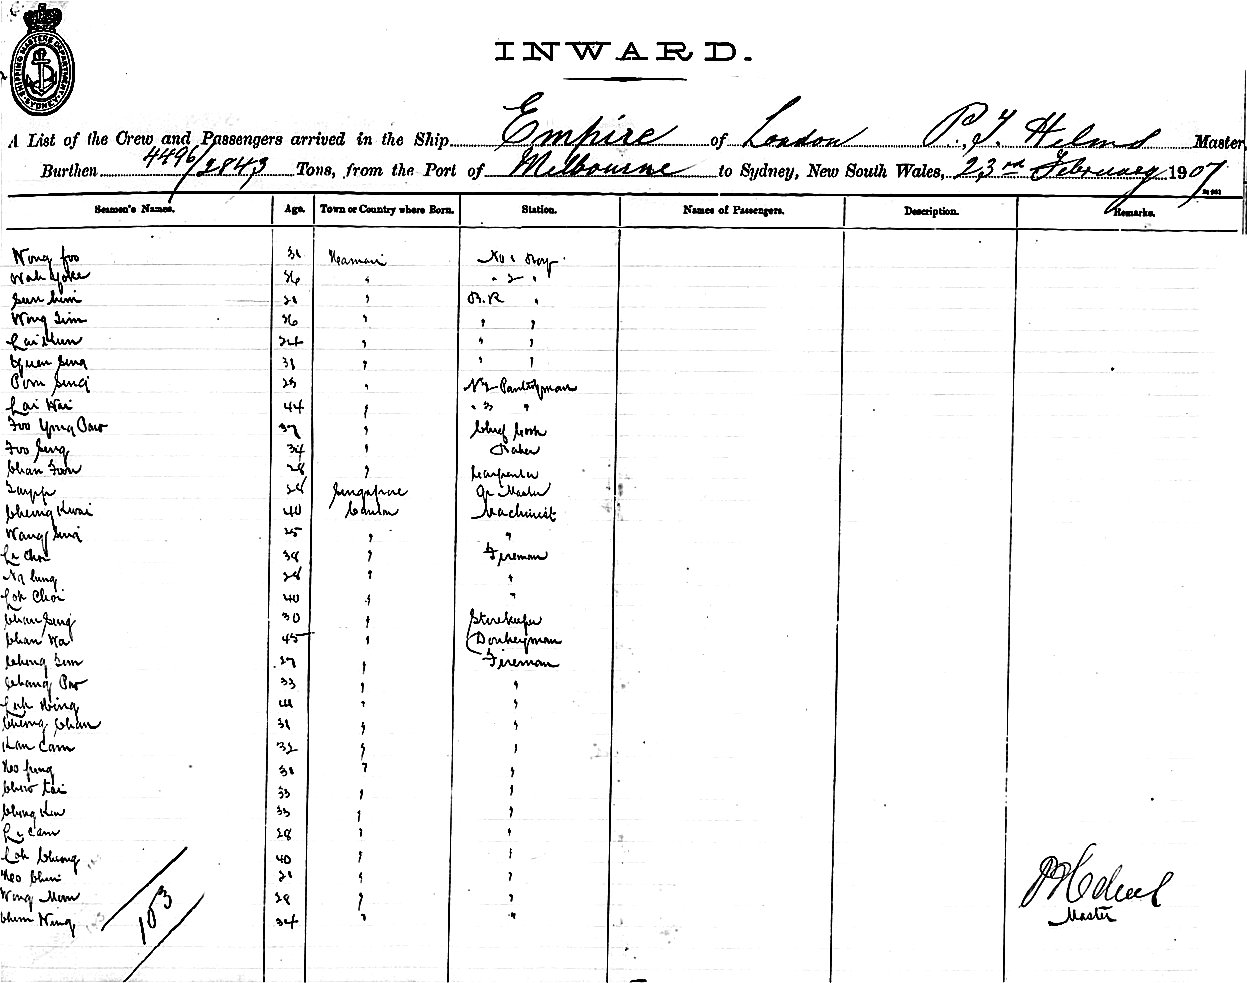 SHIPPING MASTERS DEPARTMENT SYDNEY
INWARD.
A List of the Crew and Passengers arrived in the Ship Empire of London P. T. Helms Master
Burthen 4496/2843 Tons, from the Port of Melbourne to Sydney, New South Wales, 23rd February 1907
Seamen's Names. Age. Town or Country where Born. Station. Names of Passengers. Description. Remarks.
Wong foo 31 No 1 Boy
Wah Yoke 36 " " 2 "
Sun 21 " B.R "
Wong Sim 36 " " "
Lai 24 " " "
Sing 31 " " "
Pom Sing 25 " No 2 Pantryman
Lai Wai 44 " " 3 "
Foo Yong Pow 37 " Chief Cook
Foo Seng 34 " Baker
Chan Foon 28 " Carpenter
28 Singapore Qr Master
Cheong Kwai 40 Canton Machinist
Wang Sing 25 " "
Choi 38 " Fireman
Ng lung 28 " "
Loh Choi 40 " "
Chan Seng 30 " Storekeeper
Chan Wa 45 " Donkeyman
Chong Sim 27 " Fireman
Chang Pow 33 " "
Luk Wing 41 " "
Cheong Chan 31 " "
Kan Cam 32 " "
Heo fung 31 " "
Chow Tai 33 " "
Ching Ken 33 " "
Ly Cam 28 " "
Loh Cheong 40 " "
Heo Chin 21 " "
Wong Mun 28 " "
Chun Wing 34 " "
103
P T Helms
Master